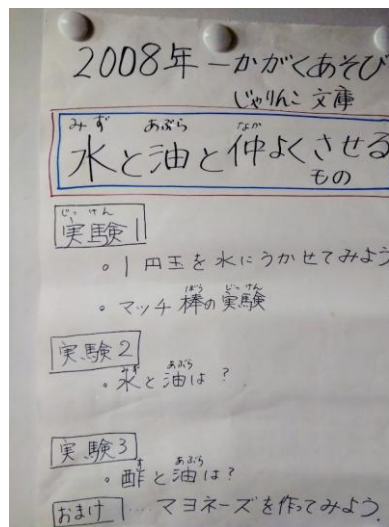 2008年－かがくあそび
じゃりんこ文庫
みず あぶら なか
水と油と仲よくさせる
もの
じっけん
実験1
。1円玉を水にうかせてみよう
ぼう じっけん
。マッチ棒の実験
実験2
みず あぶら
・水と油は？
実験3
す あぶら
・酢と油は？
おまけ … マヨネーズを作ってみよう